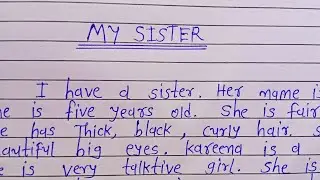 MY SISTER
I have a sister. Her mame is
is five years old. She is fair
has Thick, black, curly hair,
big eyes. kareena is a
is very talktive girl. She is